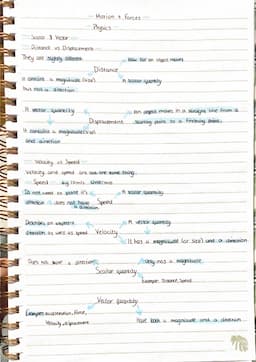 Motion & Forces
Physics
Scalar & Vector
Distance vs Displacement
They are slightly different
How far an object moves
Distance
It contains a magnitude (size)
but not a direction
A scalar quantity
A vector quantity
An object moves in a straight line from a
starting point to a finishing point
Displacement
It contains a magnitude
and direction
Velocity vs Speed
Velocity and speed are not the same thing
Speed
Does not
A scalar quantity
direction
does not have
Speed
a direction
Describes an
A vector quantity
direction as well as speed
Velocity
It has a magnitude (or size) and a direction
Does not have a direction
Only has a magnitude
Scalar quantity
Example: Distance, Speed
Vector Quantity
Examples: acceleration, Force,
Velocity, displacement
Have both a magnitude and a direction